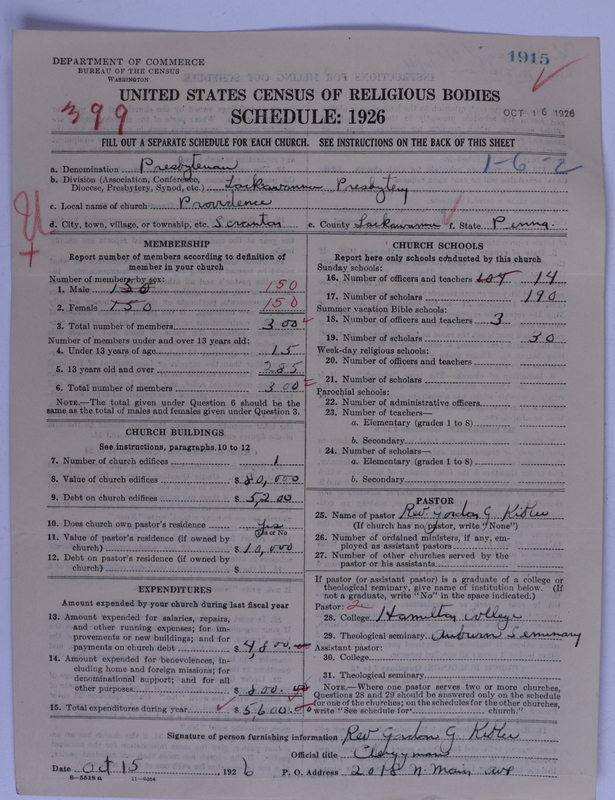 DEPARTMENT OF COMMERCE
BUREAU OF THE CENSUS
WASHINGTON
1915
UNITED STATES CENSUS OF RELIGIOUS BODIES
399
SCHEDULE: 1926
OCT 16 1926
FILL OUT A SEPARATE SCHEDULE FOR EACH CHURCH. SEE INSTRUCTIONS ON THE BACK OF THIS SHEET
1-6-2
a. Denomination Presbyterian
b. Division (Association, Conference, Diocese, Presbytery, Synod, etc.) Lackawanna Presbytery
c. Local name of church Providence
d. City, town, village, or township, etc. Scranton e. County Lackawanna f. State Penna.
MEMBERSHIP
Report number of members according to definition of
member in your church
Number of members by sex:
1. Male 130 150
2. Female 150 150
3. Total number of members 300
Number of members under and over 13 years old:
4. Under 13 years of age 15
5. 13 years old and over 285
6. Total number of members 300
NOTE.—The total given under Question 6 should be
same as the total of males and females given under Question 3.
CHURCH BUILDINGS
See instructions, paragraphs 10 to 12
7. Number of church edifices 1
8. Value of church edifices $ 80,000
9. Debt on church edifices $ 5,200
10. Does church own pastor's residence Yes
Yes or No
11. Value of pastor's residence (if owned by
church) $ 10,000
12. Debt on pastor's residence (if owned by
church) $
EXPENDITURES
Amount expended by your church during last fiscal year
13. Amount expended for salaries, repairs,
and other running expenses; for im-
provements or new buildings; and for
payments on church debt $ 4,800.00
14. Amount expended for benevolences, in-
cluding home and foreign missions; for
denominational support; and for all
other purposes $ 800.00
15. Total expenditures during year $ 5,600.00
CHURCH SCHOOLS
Report here only schools conducted by this church
Sunday schools:
16. Number of officers and teachers 14
17. Number of scholars 190
Summer vacation Bible schools:
18. Number of officers and teachers 3
19. Number of scholars 30
Week-day religious schools:
20. Number of officers and teachers
21. Number of scholars
Parochial schools:
22. Number of administrative officers
23. Number of teachers—
a. Elementary (grades 1 to 8)
b. Secondary
24. Number of scholars—
a. Elementary (grades 1 to 8)
b. Secondary
PASTOR
25. Name of pastor Rev Gordon G Kibler
(If church has no pastor, write "None")
26. Number of ordained ministers, if any, em-
ployed as assistant pastors
27. Number of other churches served by the
pastor or his assistants
If pastor (or assistant pastor) is a graduate of a college or
theological seminary, give name of institution below. (If
not a graduate, write "No" in the space indicated.)
Pastor: 2
28. College Hamilton College
29. Theological seminary Auburn Seminary
Assistant pastor:
30. College
31. Theological seminary
NOTE.—Where one pastor serves two or more churches,
Questions 28 and 29 should be answered only on the schedule
for one of the churches; on the schedules for the other churches,
write "See schedule for church."
Signature of person furnishing information Rev Gordon G Kibler
Official title Clergyman
Date Oct 15, 1926 P. O. Address 2018 N. Main Ave
8-5518 a 11-9264